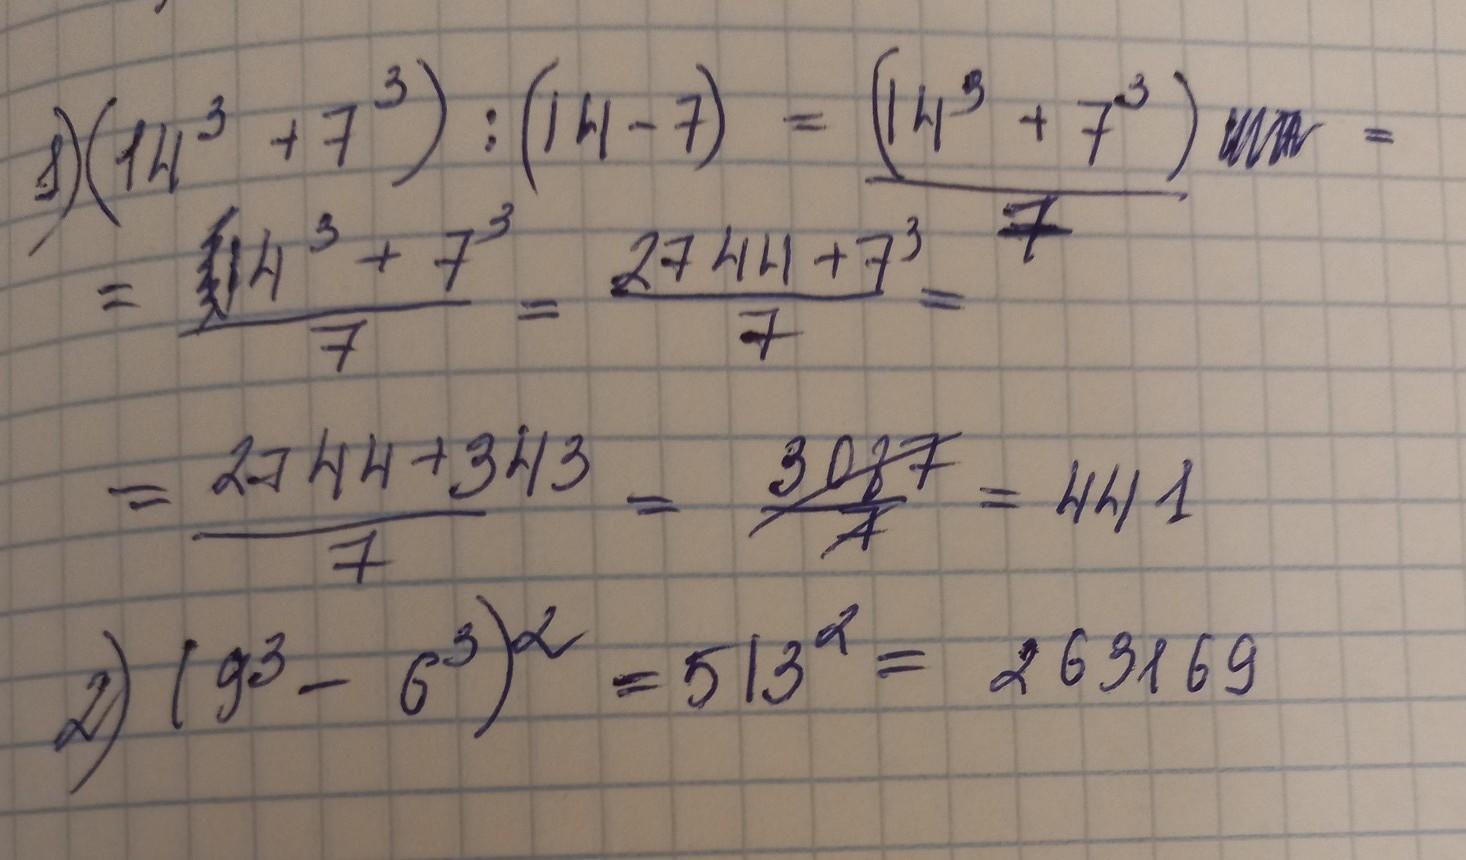 1) (14³ + 7³) : (14 - 7) = (14³ + 7³)/7 =
= 14³ + 7³/7 = 2744 + 7³/7 =
= 2744 + 343/7 = 3087/7 = 441
2) (9³ - 6³)² = 513² = 263169